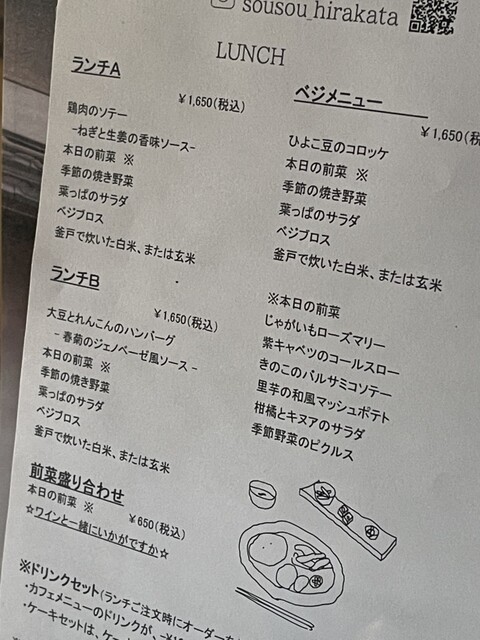 sousou_hirakata
LUNCH
ランチA
¥1,650(税込)
鶏肉のソテー
-ねぎと生姜の香味ソース-
本日の前菜 ※
季節の焼き野菜
葉っぱのサラダ
ベジブロス
釜戸で炊いた白米、または玄米
ランチB
¥1,650(税込)
大豆とれんこんのハンバーグ
- 春菊のジェノベーゼ風ソース -
本日の前菜 ※
季節の焼き野菜
葉っぱのサラダ
ベジブロス
釜戸で炊いた白米、または玄米
前菜盛り合わせ
¥650(税込)
本日の前菜 ※
☆ワインと一緒にいかがですか☆
※ドリンクセット(ランチご注文時にオーダー
・カフェメニューのドリンクが、
・ケーキセットは、
ベジメニュー
¥1,650(税
ひよこ豆のコロッケ
本日の前菜 ※
季節の焼き野菜
葉っぱのサラダ
ベジブロス
釜戸で炊いた白米、または玄米
※本日の前菜
じゃがいもローズマリー
紫キャベツのコールスロー
きのこのバルサミコソテー
里芋の和風マッシュポテト
柑橘とキヌアのサラダ
季節野菜のピクルス